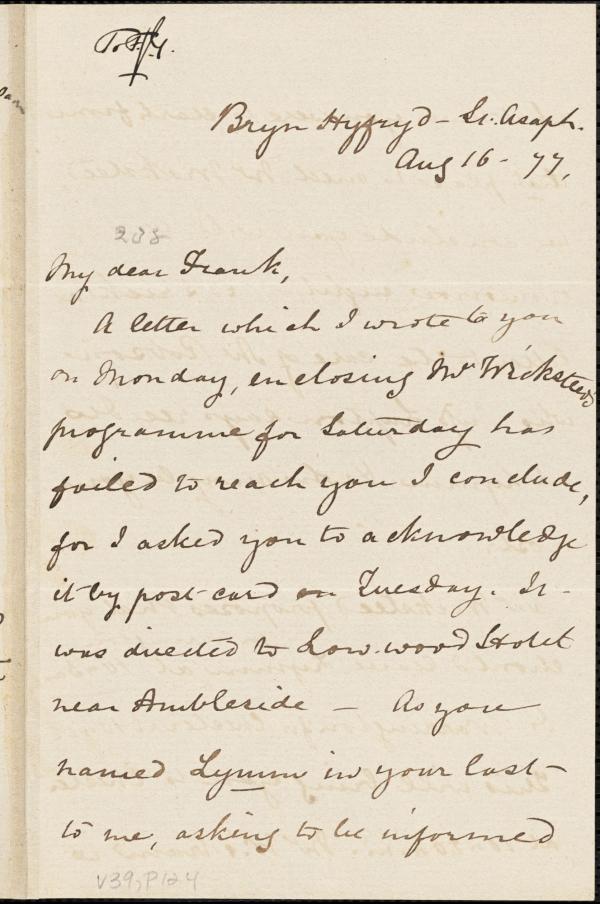 Bryn Hyfryd - St. Asaph.
Aug 16 - 77,
238
My dear Frank,
A letter which I wrote to you
on Monday, enclosing Mr Wicksteed's
programme for Saturday has
failed to reach you I conclude,
for I asked you to acknowledge
it by post-card on Tuesday. It
was directed to Low-wood Hotel
near Ambleside - As you
named Lymm in your last
to me, asking to be informed
V39, P124